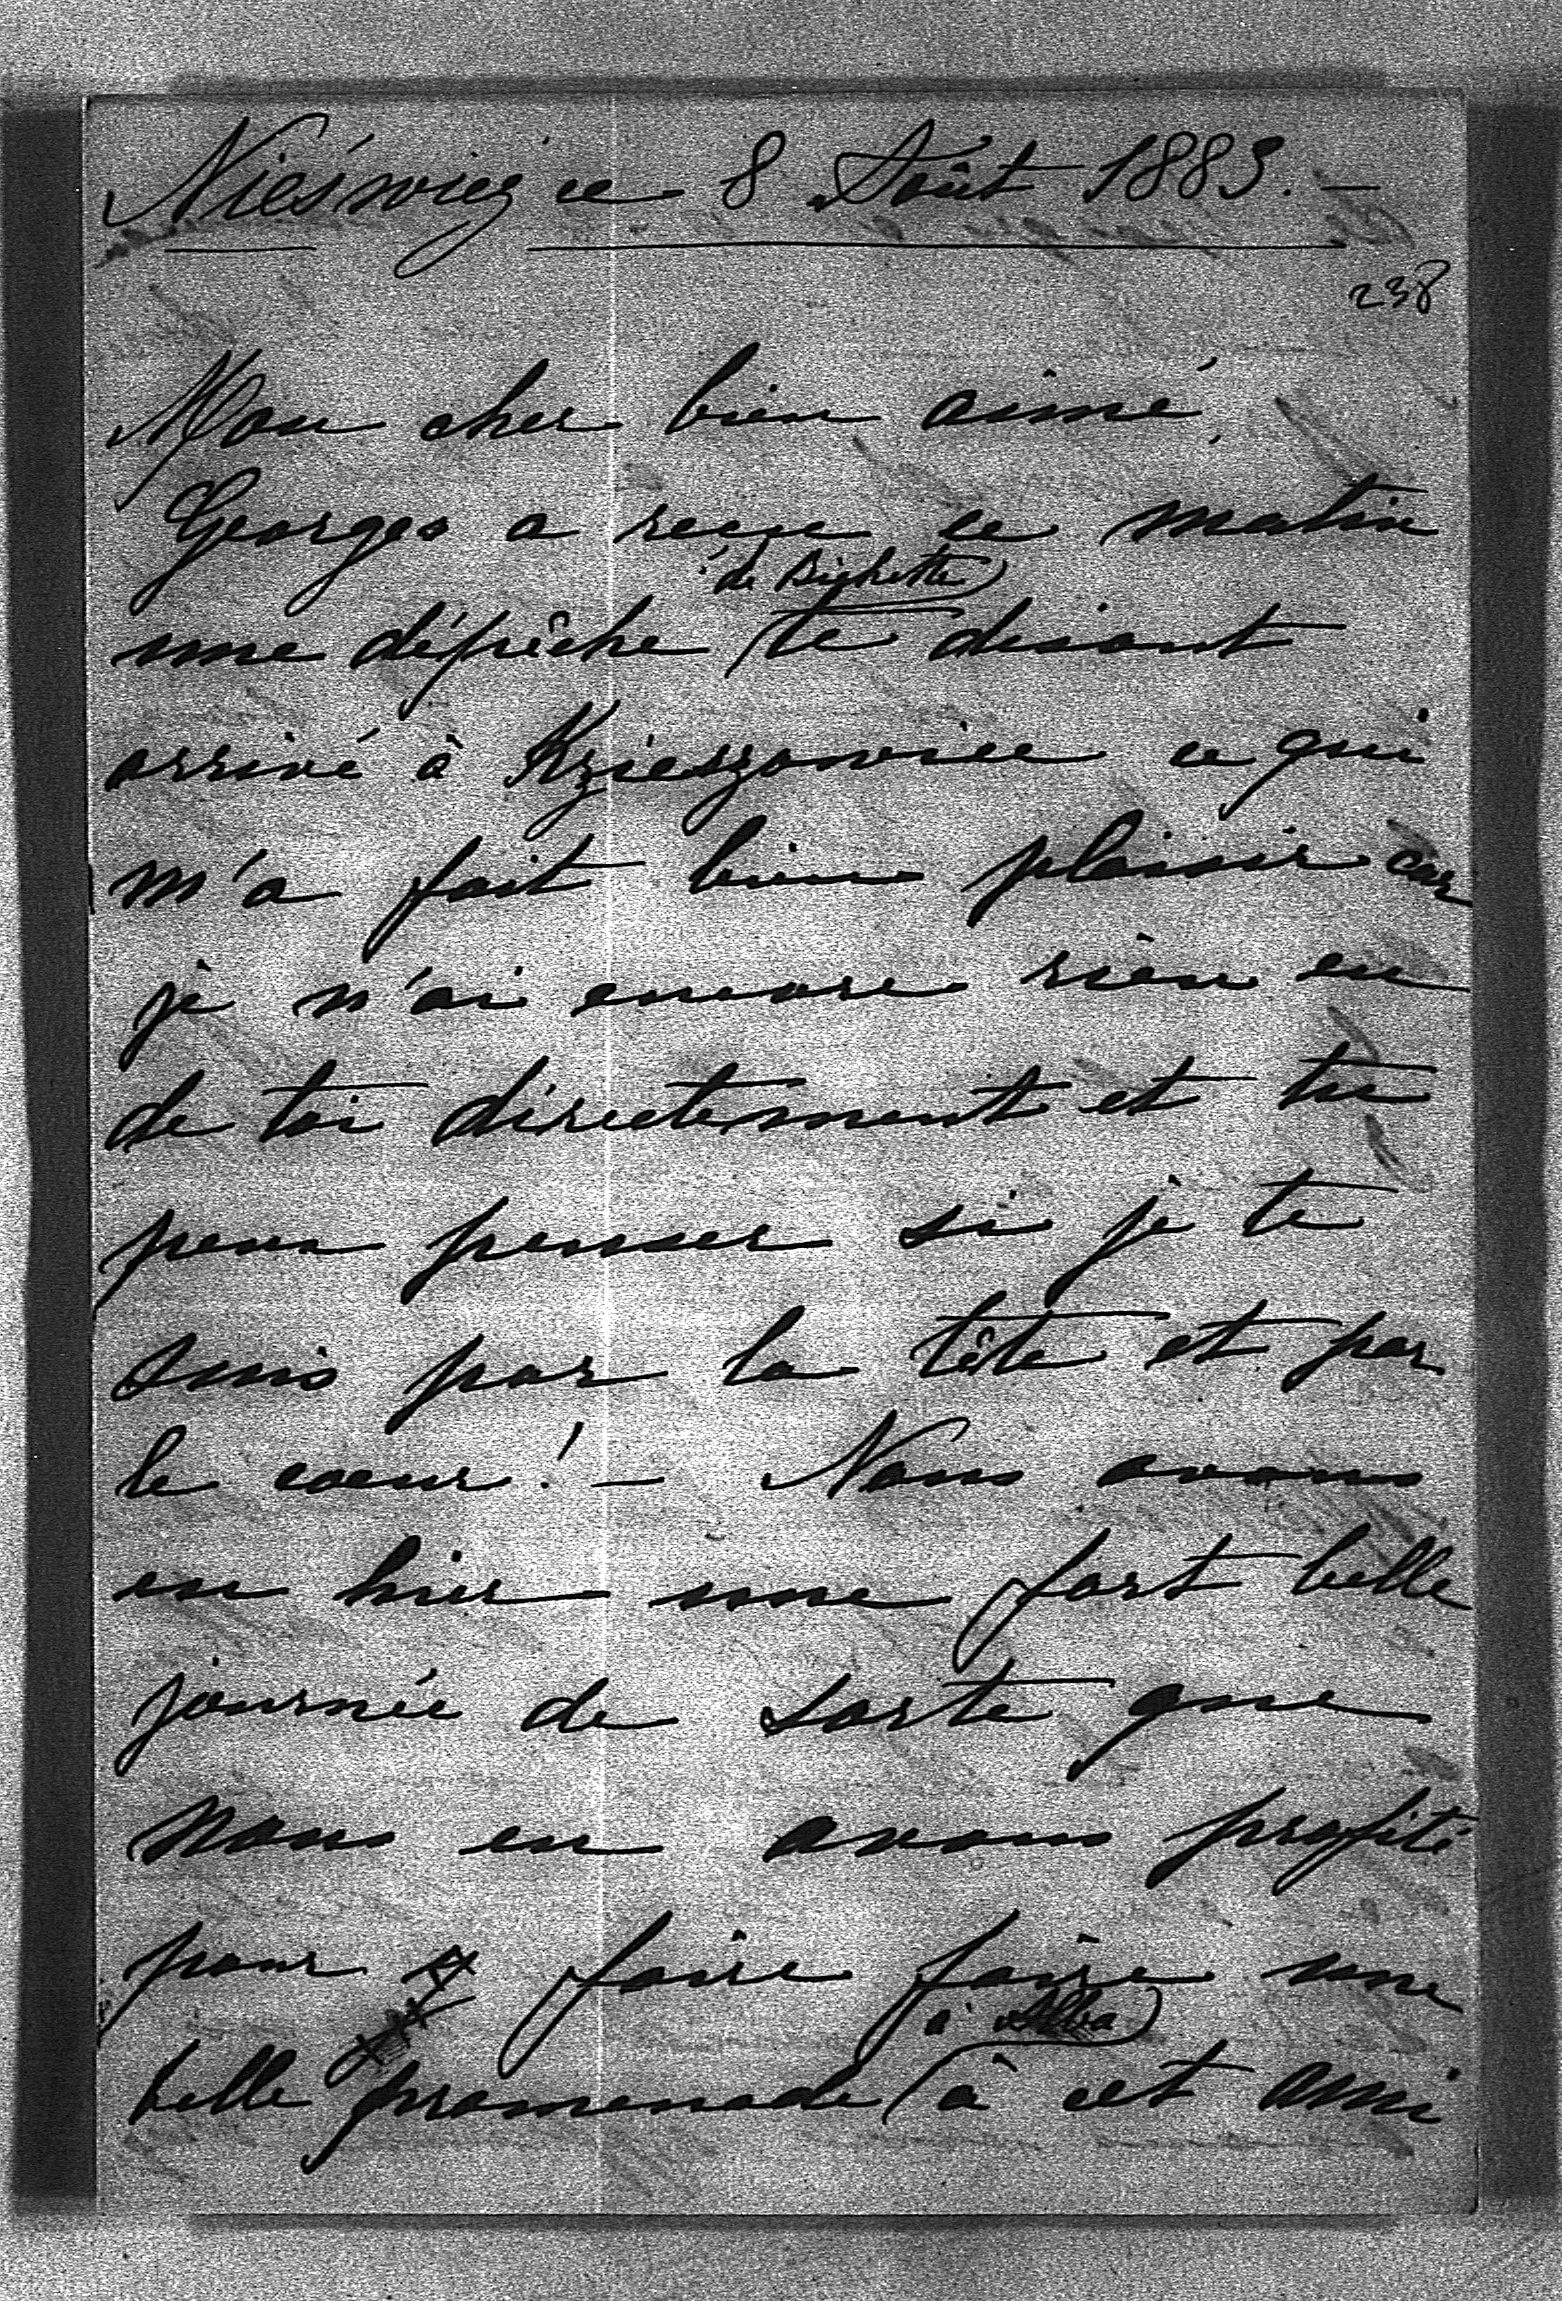 Nieśwież ce 8 Août 1883. —
238
Mon cher bien aimé,
Georges a reçu ce matin
de Bichette
une dépêche te disant
arrivé à Krzieszowice ce qui
m'a fait bien plaisir car
je n'ai encore rien eu
de toi directement et tu
peux penser si je te
suis par la tête et par
le coeur! — Nous avons
eu hier une fort belle
journée de sorte que
nous en avons profité
pour faire faire une
à Alba
belle promenade à cet ami